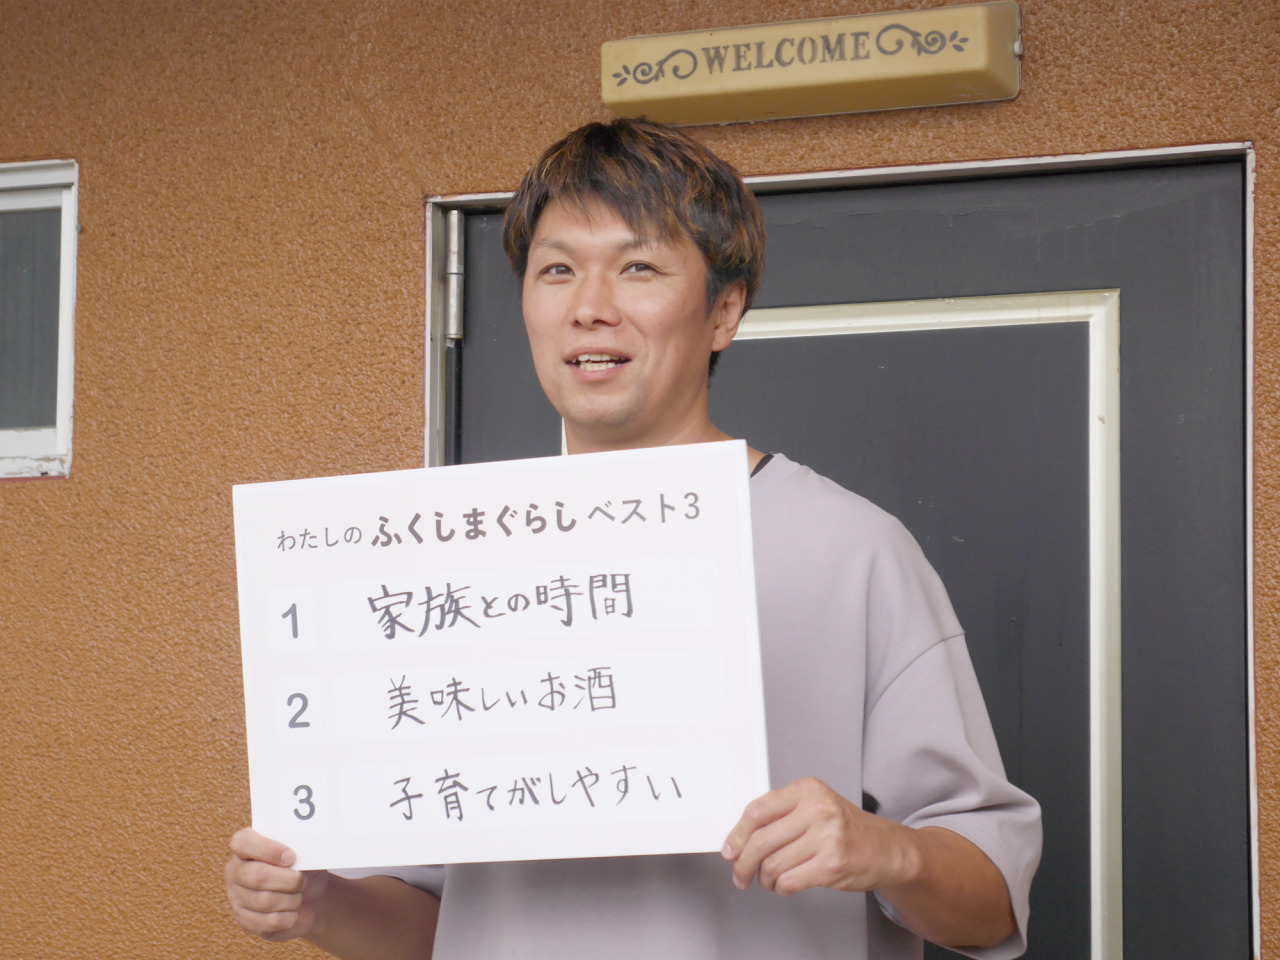 WELCOME
わたしの ふくしまぐらし ベスト3
1 家族との時間
2 美味しいお酒
3 子育てがしやすい